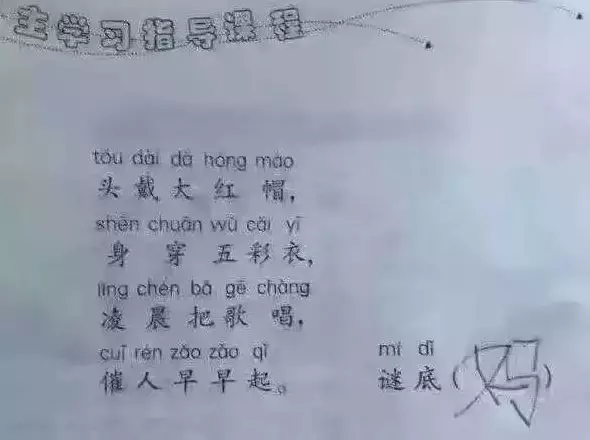 主学习指导课程
tóu dài dà hóng mào
头戴大红帽，
shēn chuān wǔ cǎi yī
身穿五彩衣，
líng chén bǎ gē chàng
凌晨把歌唱，
cuī rén zǎo zǎo qǐ mí dǐ
催人早早起。 谜底(妈)